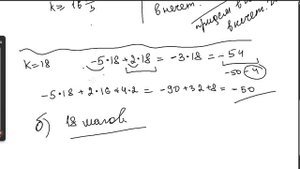 k ≥ 16
в нечет.
придем в
в нечет.
K=18
-5·18+2·18 = -3·18 = -54
-50-4
-5·18+2·16+4·2 = -90+32+8 = -50
б) 18 шагов